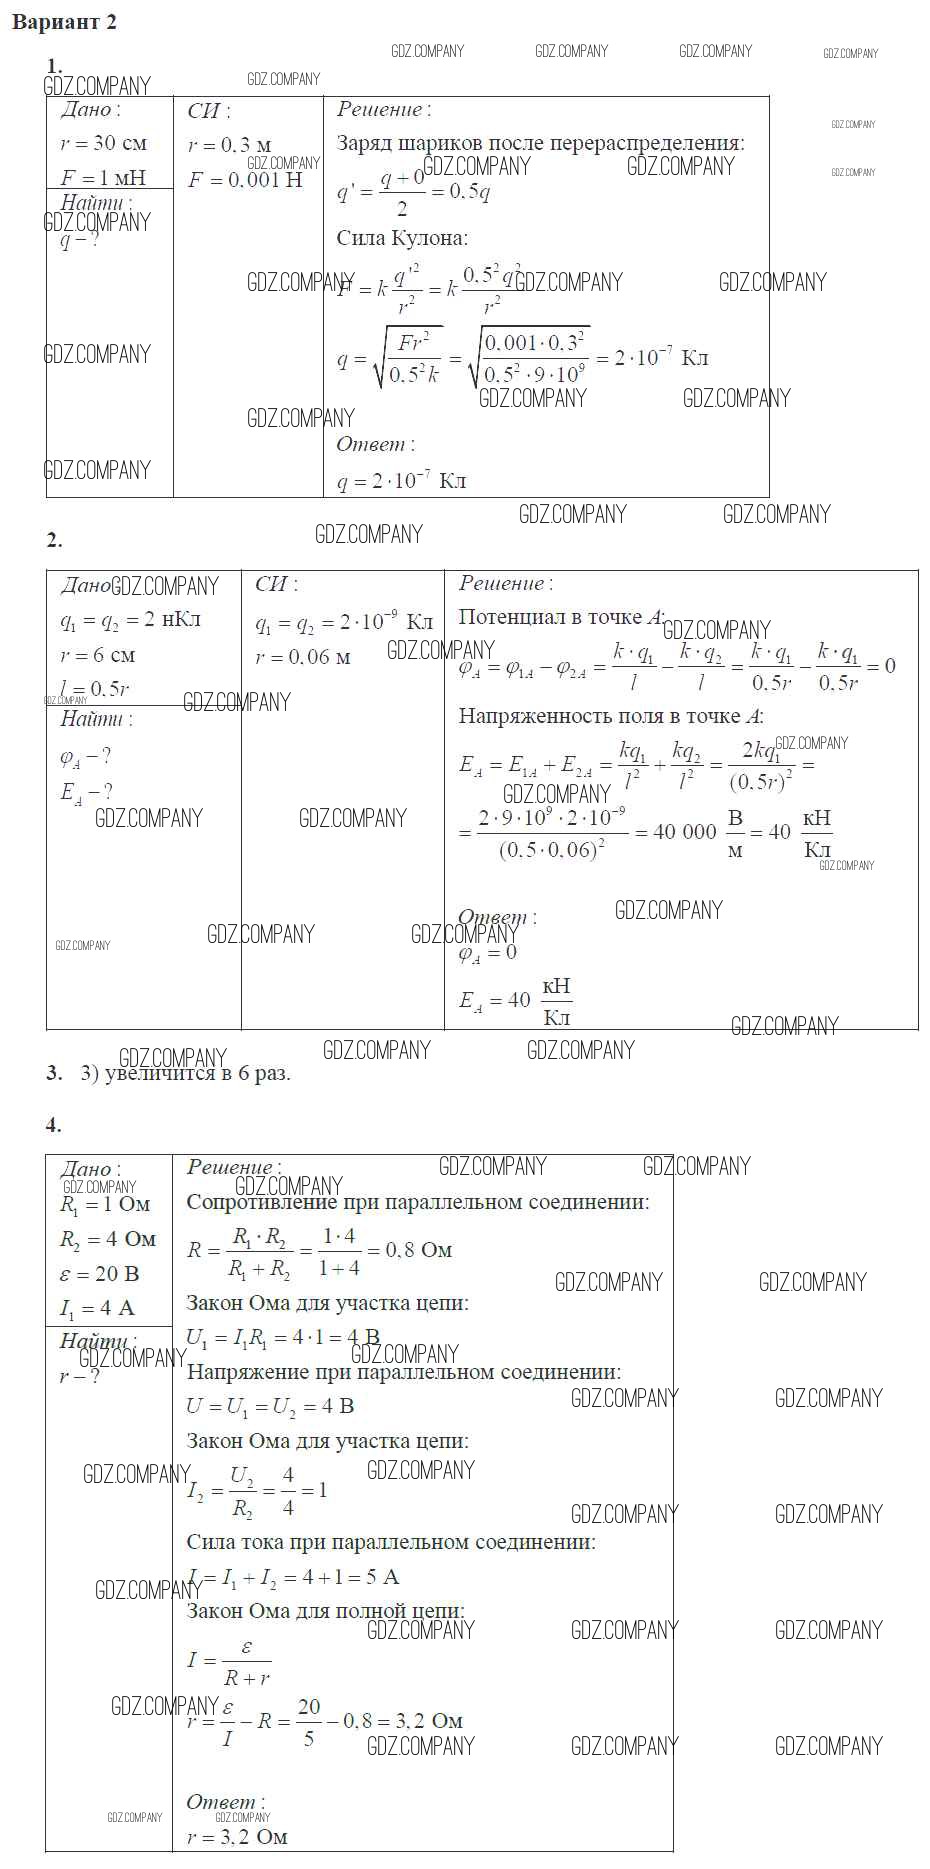 Вариант 2
1.
Дано :
r = 30 см
F = 1 мН
Найти :
q − ?
СИ :
r = 0,3 м
F = 0,001 Н
Решение :
Заряд шариков после перераспределения:
q' = (q + 0)/2 = 0,5q
Сила Кулона:
F = k q'²/r² = k 0,5² q²/r²
q = √(Fr²/(0,5² k)) = √((0,001·0,3²)/(0,5²·9·10⁹)) = 2·10⁻⁷ Кл
Ответ :
q = 2·10⁻⁷ Кл
2.
Дано
q₁ = q₂ = 2 нКл
r = 6 см
l = 0,5r
Найти :
φ_A − ?
E_A − ?
СИ :
q₁ = q₂ = 2·10⁻⁹ Кл
r = 0,06 м
Решение :
Потенциал в точке A:
φ_A = φ_1A − φ_2A = k·q₁/l − k·q₂/l = k·q₁/0,5r − k·q₁/0,5r = 0
Напряженность поля в точке A:
E_A = E_1A + E_2A = kq₁/l² + kq₂/l² = 2kq₁/(0,5r)² =
= (2·9·10⁹·2·10⁻⁹)/(0,5·0,06)² = 40 000 В/м = 40 кН/Кл
Ответ :
φ_A = 0
E_A = 40 кН/Кл
3. 3) увеличится в 6 раз.
4.
Дано :
R₁ = 1 Ом
R₂ = 4 Ом
ε = 20 В
I₁ = 4 А
Найти :
r − ?
Решение :
Сопротивление при параллельном соединении:
R = R₁·R₂/(R₁ + R₂) = 1·4/(1+4) = 0,8 Ом
Закон Ома для участка цепи:
U₁ = I₁R₁ = 4·1 = 4 В
Напряжение при параллельном соединении:
U = U₁ = U₂ = 4 В
Закон Ома для участка цепи:
I₂ = U₂/R₂ = 4/4 = 1
Сила тока при параллельном соединении:
I = I₁ + I₂ = 4 + 1 = 5 А
Закон Ома для полной цепи:
I = ε/(R + r)
r = ε/I − R = 20/5 − 0,8 = 3,2 Ом
Ответ :
r = 3,2 Ом
GDZ.COMPANY